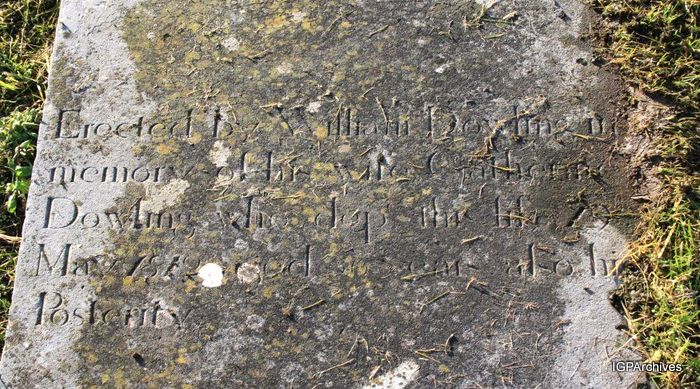 Erected by William Dowling in
memory of his wife Catherine
Dowling who dep this life
May aged years also his
Posterity
IGPArchives